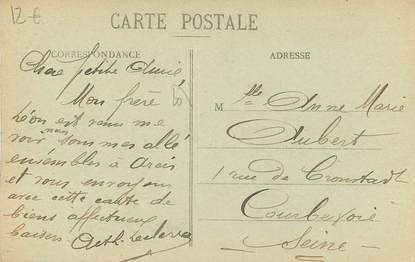 12 €
CARTE POSTALE
CORRESPONDANCE
ADRESSE
Chère petite Amie,
Mon frère
Léon est venu me
voir nous sommes allé
ensembles à Arcis
et vous envoyons
avec cette carte de
biens affectueux
baisers.
M lle Anne Marie
Aubert
1 rue de Cronstadt
Courbevoie
Seine